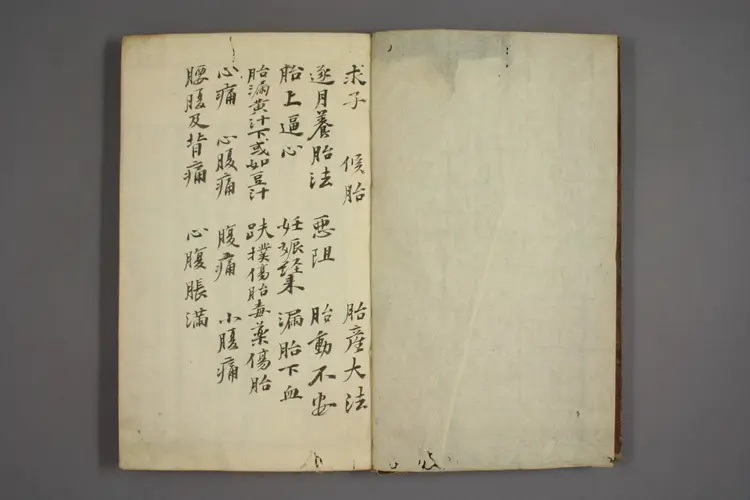 求子 候胎 胎產大法
逐月養胎法 惡阻 胎動不安
胎上逼心 妊娠經來 漏胎下血
胎漏黃汁下或如豆汁 跌撲傷胎毒藥傷胎
心痛 心腹痛 腹痛 小腹痛
腰腹及背痛 心腹脹滿